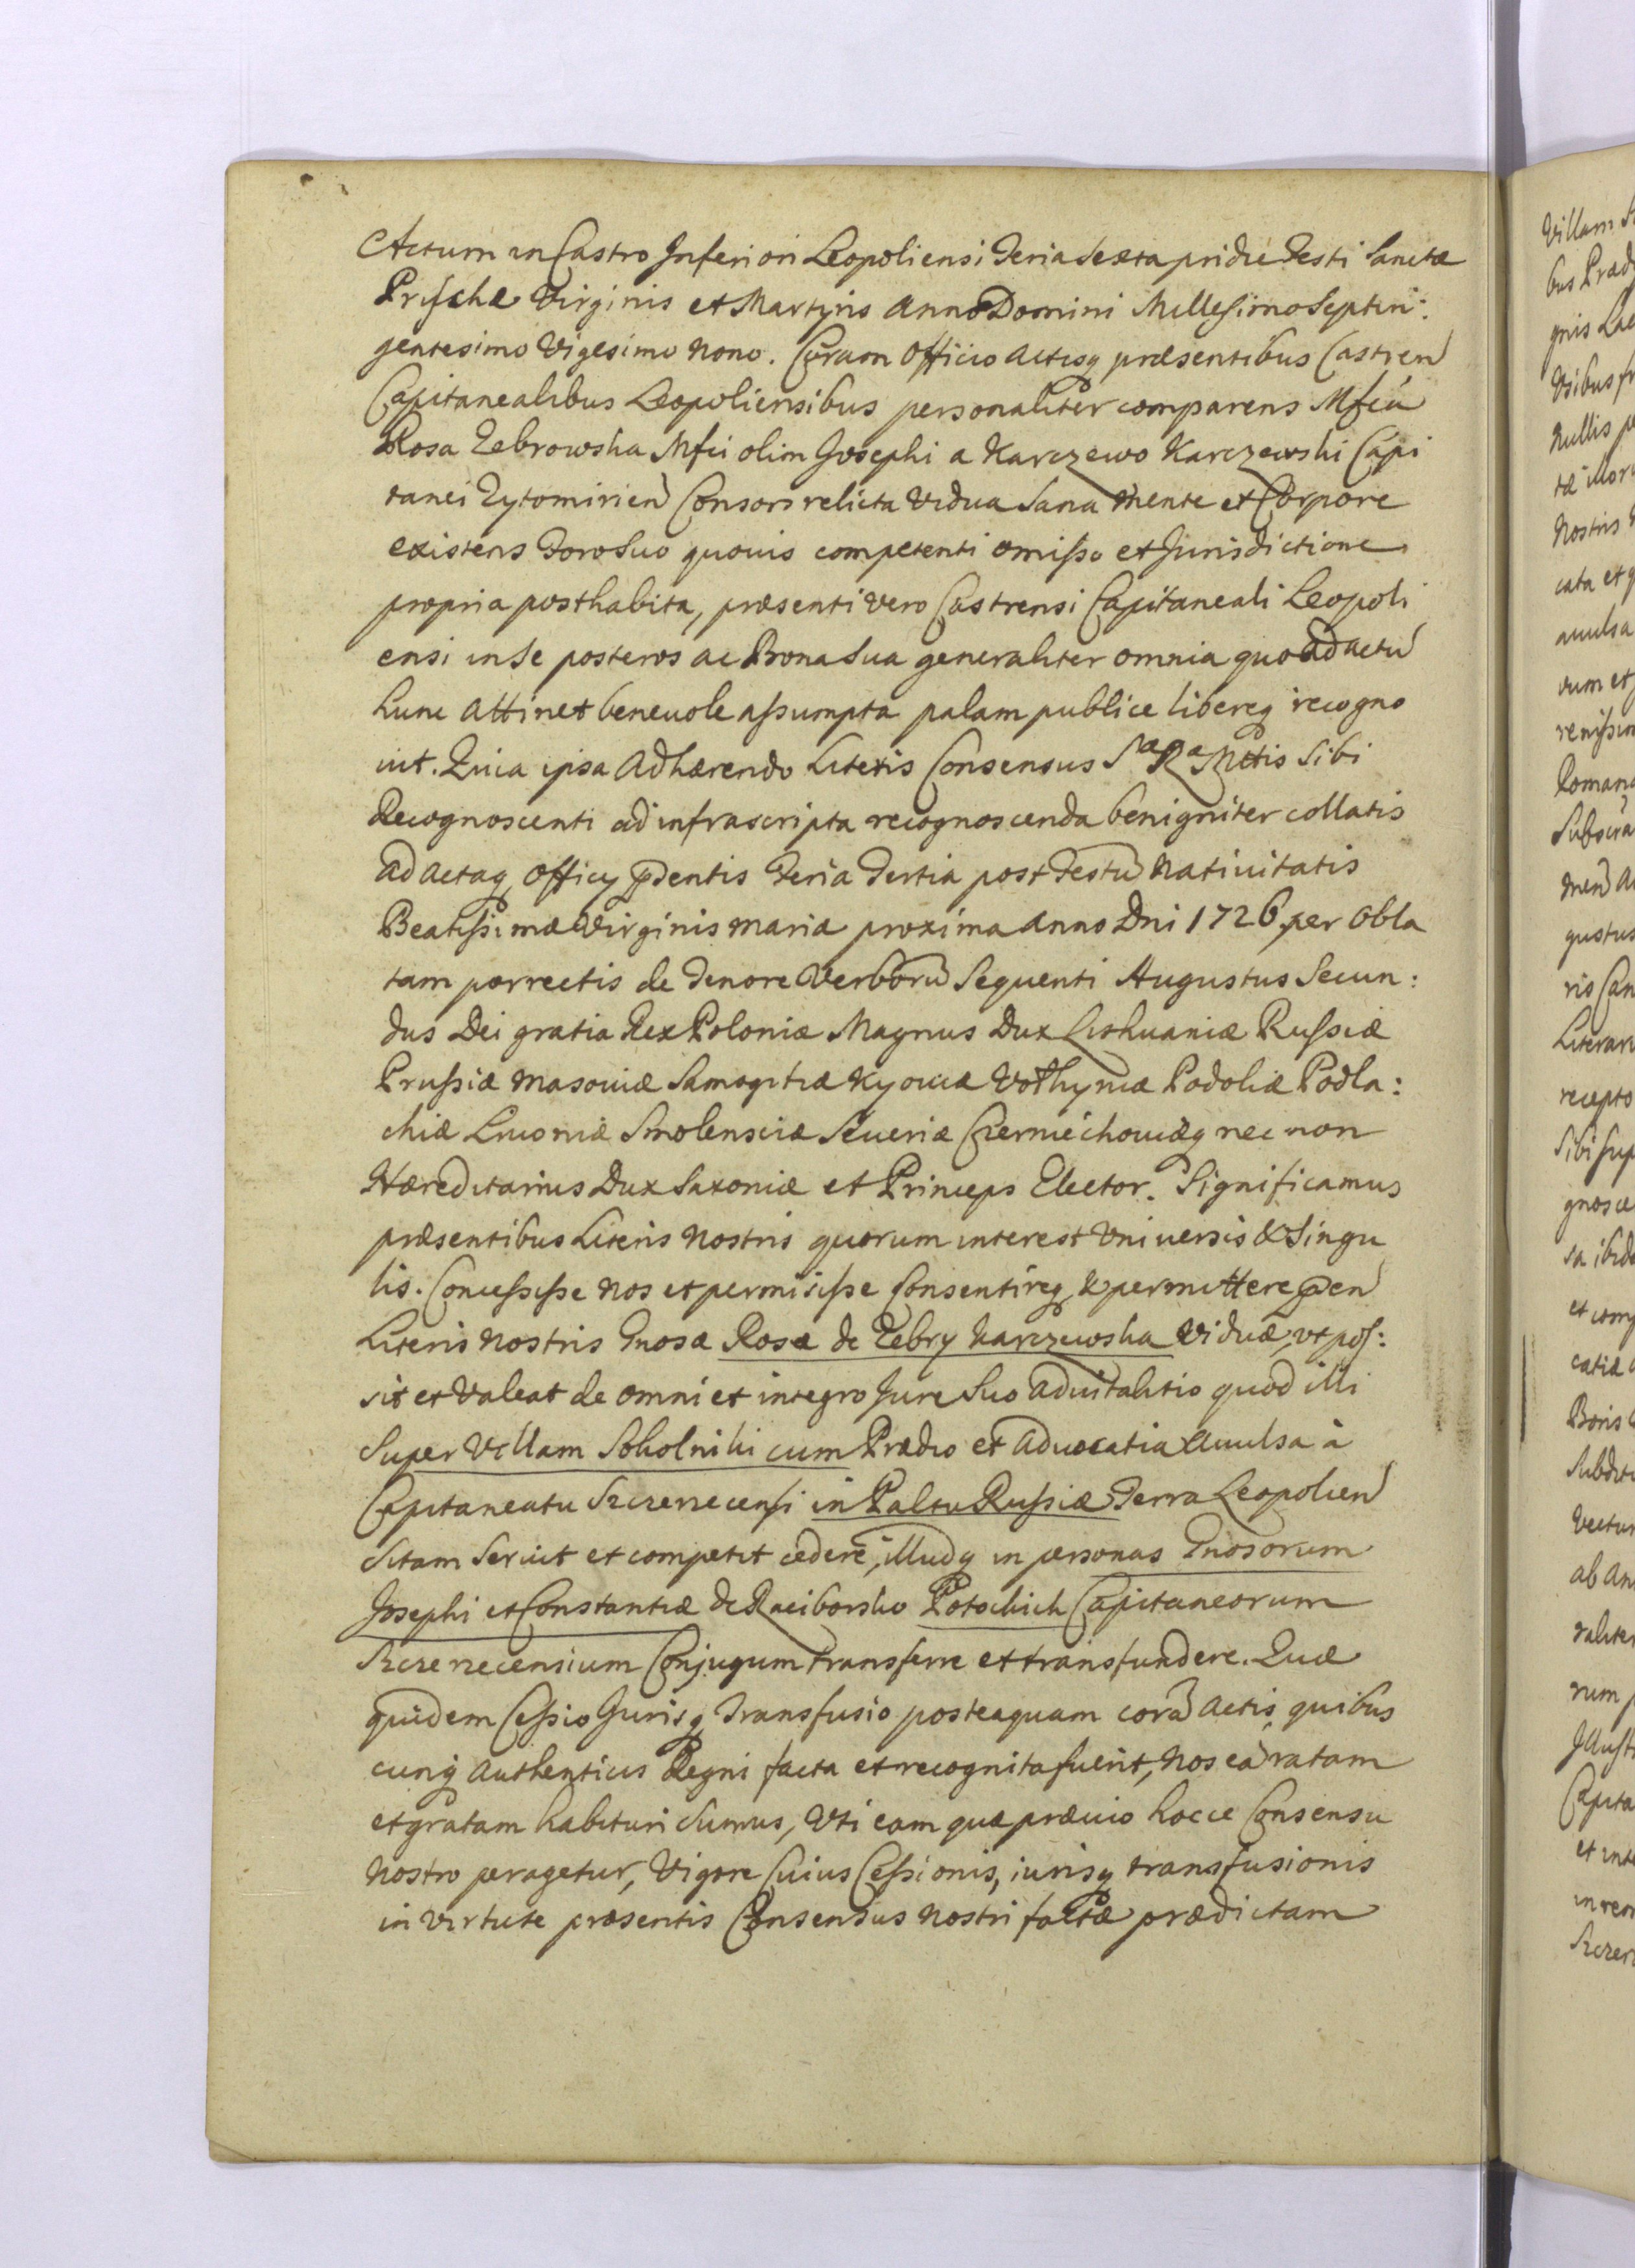 Actum in Castro Inferiori Leopoliensi Feria Sexta pridie Festi Sanctæ
Prischæ Virginis et Martyris Anno Domini Millesimo Septin:
gentesimo Vigesimo Nono. Coram Officio Actisq præsentibus Castren
Capitanealibus Leopoliensibus personaliter comparens Mfca
Rosa Zebrowska Mfci olim Josephi a Karczewo Karczewski Capi
tanei Zytomirien Consors relicta Vidua Sana Mente et Corpore
existens Foro Suo quovis competenti omisso et Jurisdictione
propria posthabita, præsenti vero Castrensi Capitaneali Leopoli
ensi in Se posteros ac Bona Sua generaliter omnia quo ad actu
hunc attinet beneuole assumpta palam publice libereq recogno
uit. Quia ipsa Adhærendo Literis Consensus Sæ Ræ Mttis Sibi
Recognoscenti ad infrascripta recognoscenda benigniter collatis
ad actaq Officy pdentis Feria Tertia post Festu Natiuitatis
Beatissimæ Virginis Mariæ proxima Anno Dni 1726, per Obla
tam porrectis de Tenore Verboru Sequenti Augustus Secun:
dus Dei gratia Rex Poloniæ Magnus Dux Lithuaniæ Russiæ
Prussiæ Masouiæ Samogitiæ Kyouiæ Volhyniæ Podoliæ Podla:
chiæ Liuoniæ Smolensciæ Seueriæ Czerniechouiæq nec non
Hæreditarius Dux Saxoniæ et Princeps Elector. Significamus
præsentibus Literis Nostris quorum interest Vniuersis & Singu
lis. Concessisse Nos et permisisse Consentireq & permittere pen
Literis Nostris Gnosæ Rosæ de Zebry Karczewska Viduæ, vt pos:
sit et Valeat de omni et integro Jure Suo aduitalitio quod illi
Super Villam Sokolniki cum Prædio et aduocatia Auulsa à
Capitaneatu Szczerzecensi in Paltu Russiæ Terra Leopolien
Sitam Seruit et competit cedere, illudq in personas Gnosorum
Josephi et Constantiæ de Raciborsko Potockich Capitaneorum
Szczerzecensium Conjugum transferre et transfundere. Quæ
quidem Cessio Jurisq Transfusio posteaquam cora Actis quibus
cunq Authenticis Regni facta et recognita fuerit, Nos ea ratam
et gratam habituri Sumus, Vti eam quæ præuio hocce Consensu
Nostro peragetur, Vigore Cuius Cessionis, iurisq transfusionis
in Virtute præsentis Consensus Nostri factæ prædictam